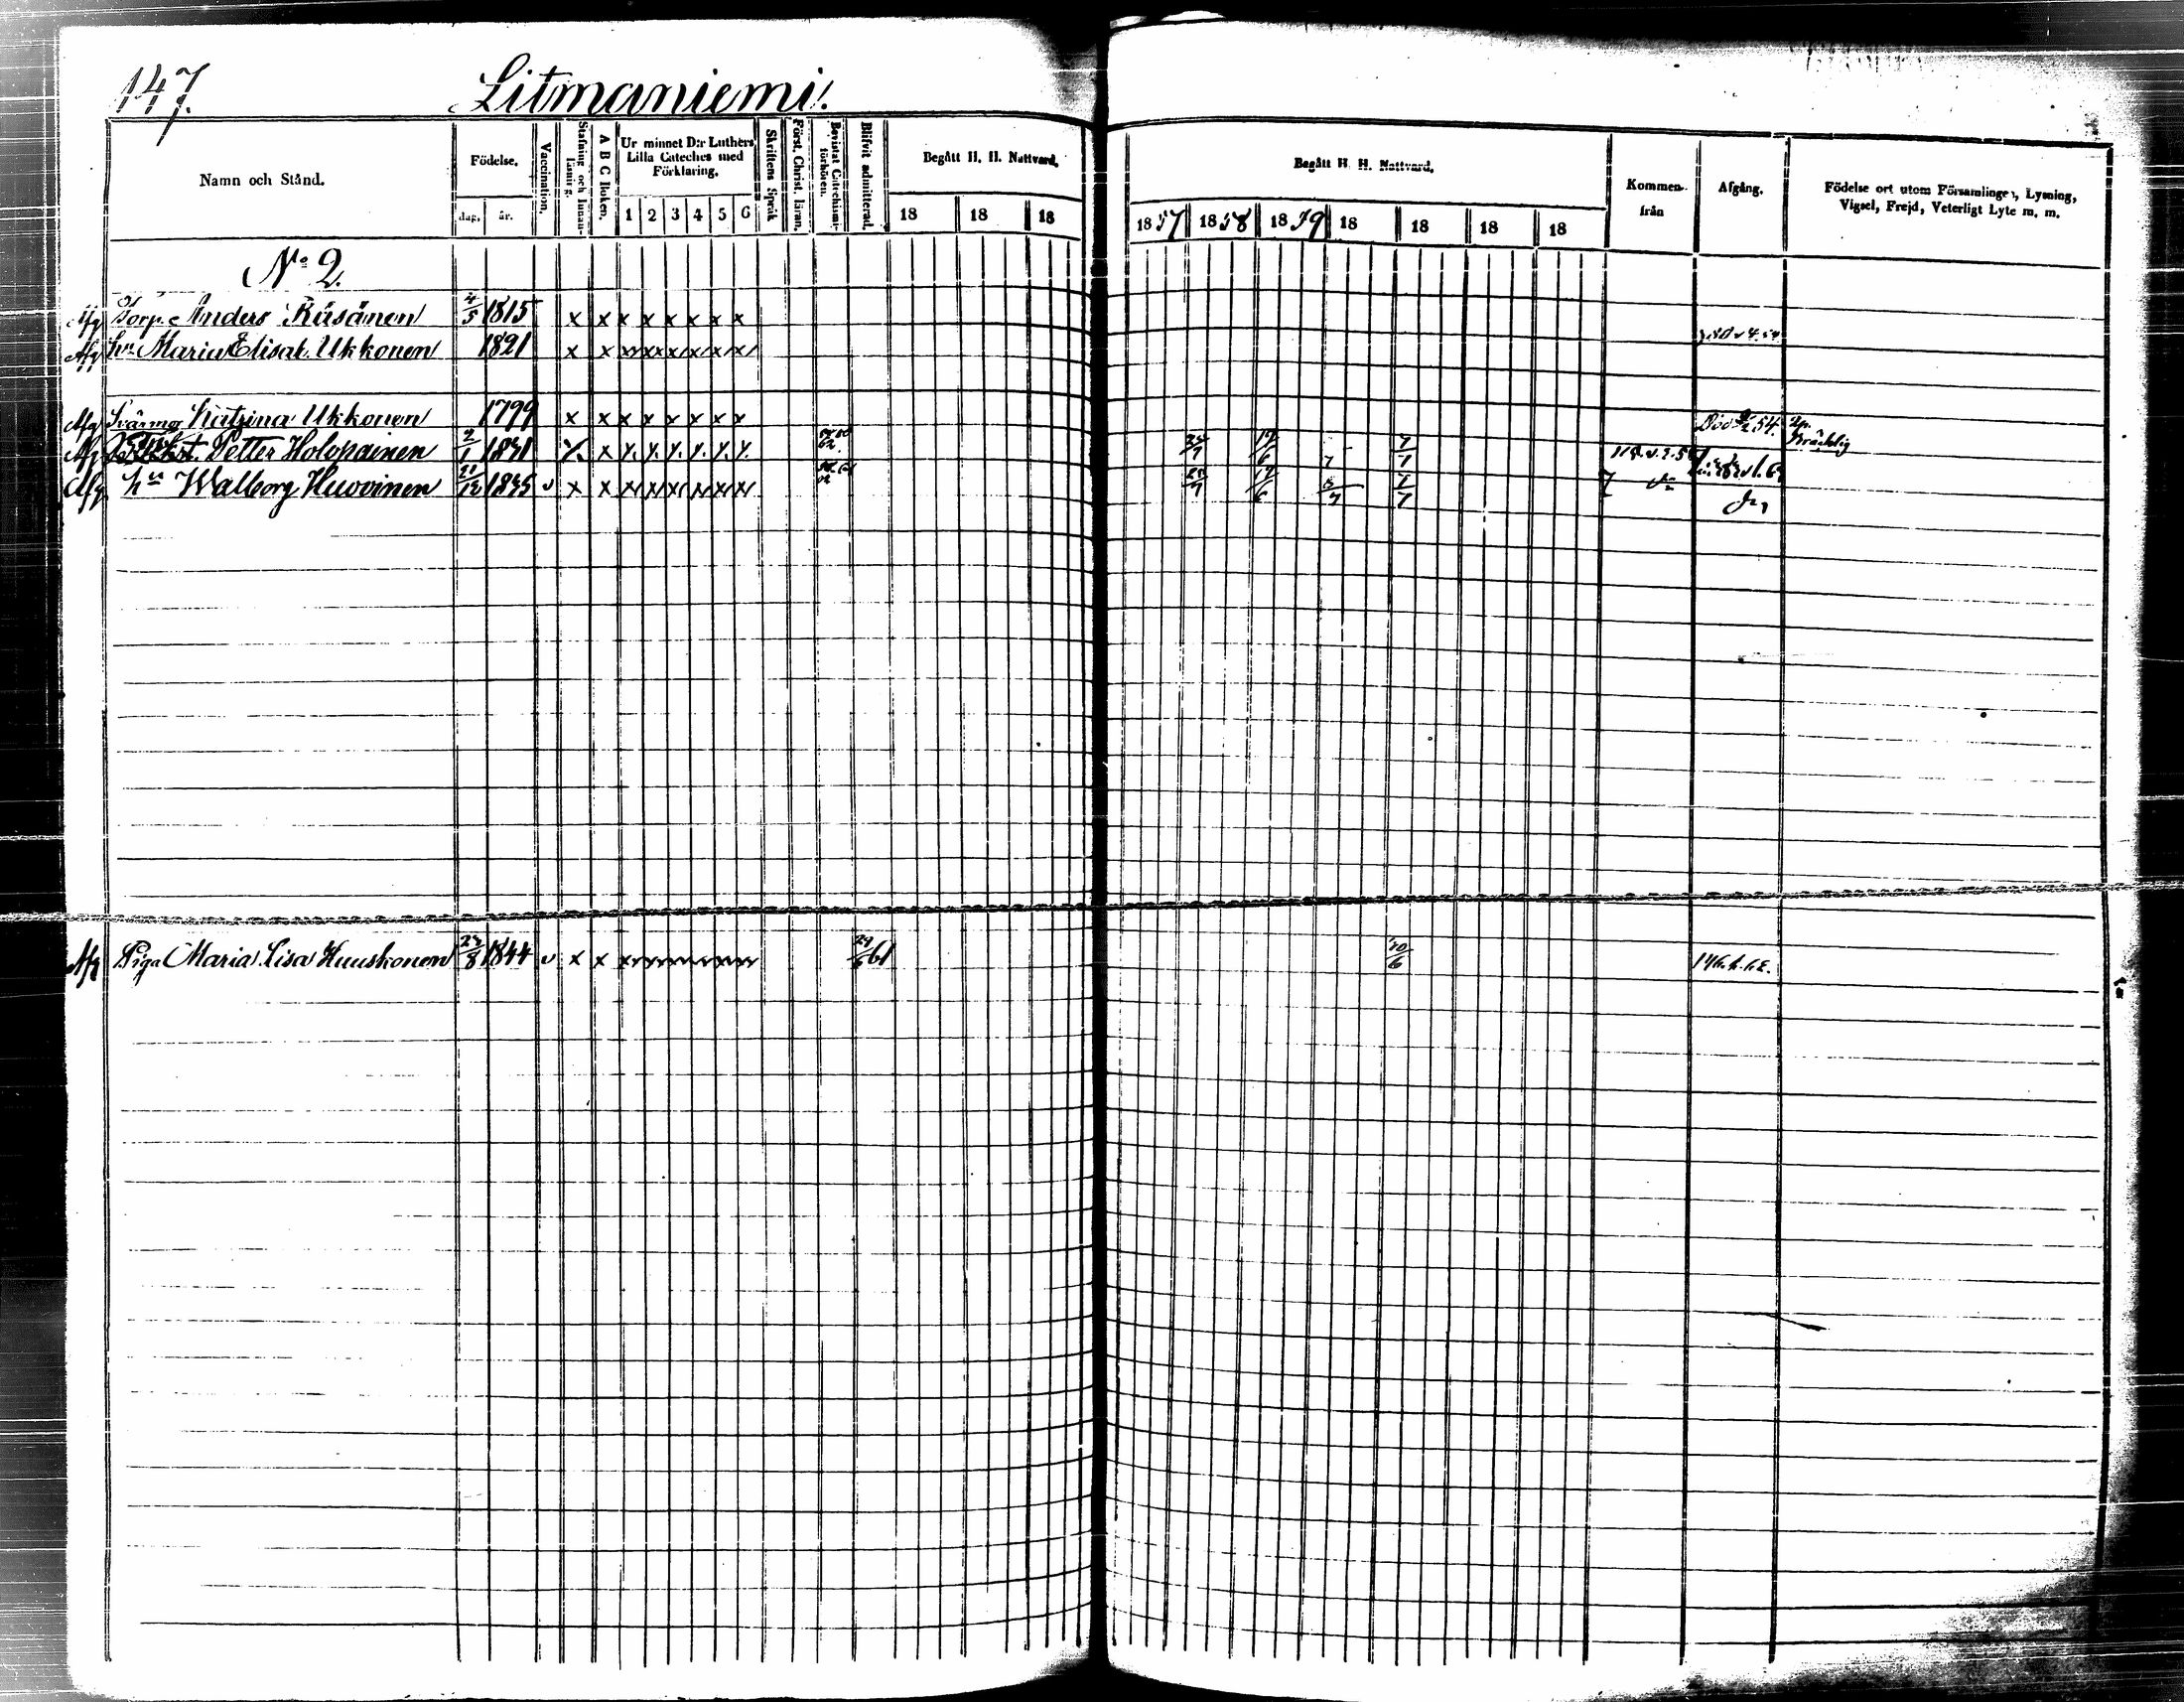 147.
Litmaniemi.
Namn och Stånd.
Födelse.
dag. år.
Vaccination.
Stafning och Innanläsning.
A B C Boken.
Ur minnet D:r Luthers Lilla Cateches med Förklaring.
1 2 3 4 5 6
Skriftens Språk
Först. Christ. läran.
Bevistat Catechismi-förhören.
Blifvit admitterad.
Begått H. H. Nattvard.
18 18 18
Begått H. H. Nattvard.
1857 1858 1859 18 18 18 18
Kommen från
Afgång.
Födelse ort utom Församlingen, Lysning, Vigsel, Frejd, Veterligt Lyte m. m.
No 2.
Afg Torp. Anders Räsänen 4/5 1815 x x x x x x x x
Afg hu Maria Elisab. Ukkonen 1821 x x x x x x x x
Afg Svärmor Katrina Ukkonen 1799 x x x x x x x x Död 54. Bräcklig
Afg Petter Holopainen 2/1 1831 x x y. y. y. y. y. y. 17/6 7/7
Afg hu Walborg Huovinen 21/12 1835 v x x x x x x x x 17/6 7/7 do
Afg Piga Maria Lisa Huuskonen 23/8 1844 v x x x x x x x x 29/6 61 30/6 146.